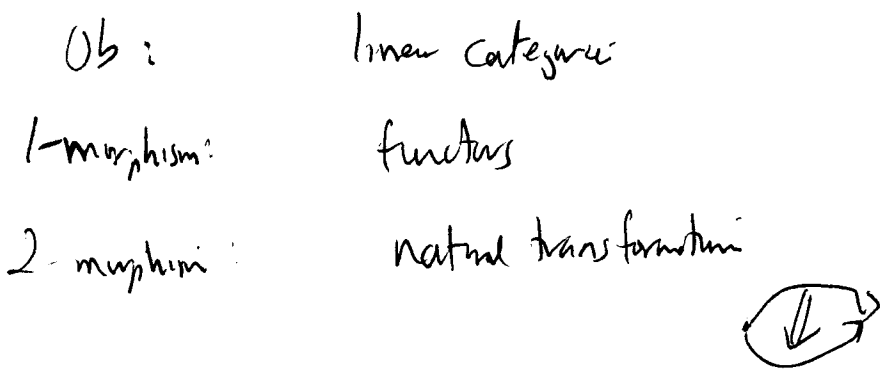 Ob: linear categories
1-morphism: functors
2-morphism: natural transformation